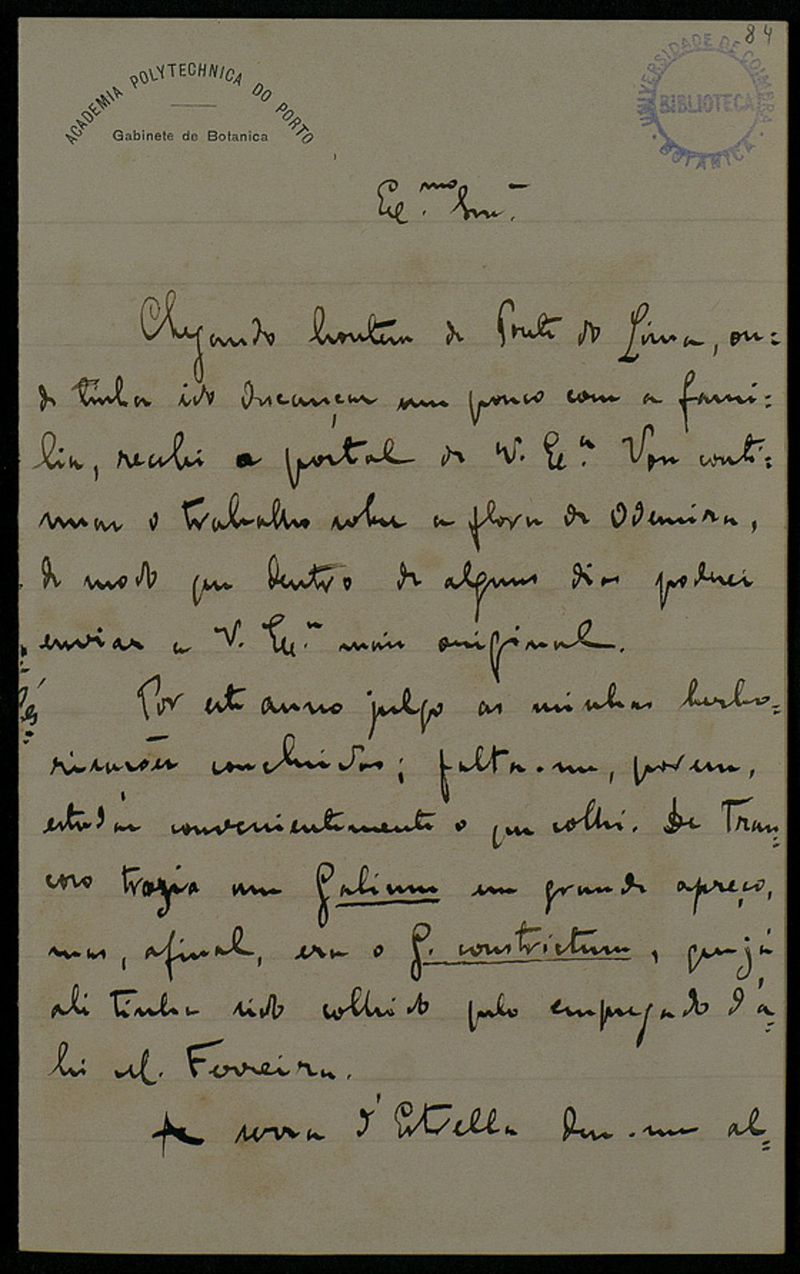 84
ACADEMIA POLYTECHNICA DO PORTO
Gabinete de Botanica
UNIVERSIDADE DE COIMBRA
BIBLIOTECA
BOTANICA
Ex.mo Snr.
Chegando hontem de Ponte do Lima, on=
de tinha ido descançar um pouco com a fami=
lia, recebi o postal de V. Ex.a Vou conti=
nuar o trabalho sobre a flora de Odemira,
de modo que dentro de alguns dias poderei
enviar a V. Ex.a mais original.
Por este anno julgo as minhas herbo=
risações concluidas; falta-me, porem,
estudar convenientemente o que colhi. De Tran=
coso trazia um Galium em grande apreço,
mas, afinal, era o G. constrictum, que já
ali tinha sido colhido pelo empregado d'a=
hi M. Ferreira.
A serra d'Estrella deu-me al=